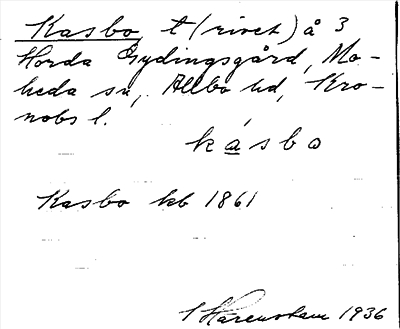 Kasbo, t (rivet) å 3
Horda Gydingsgård, Mo-
heda sn, Allbo hd, Kro-
nobs l.
kásbo
Kasbo kb 1861
Harenstam 1936